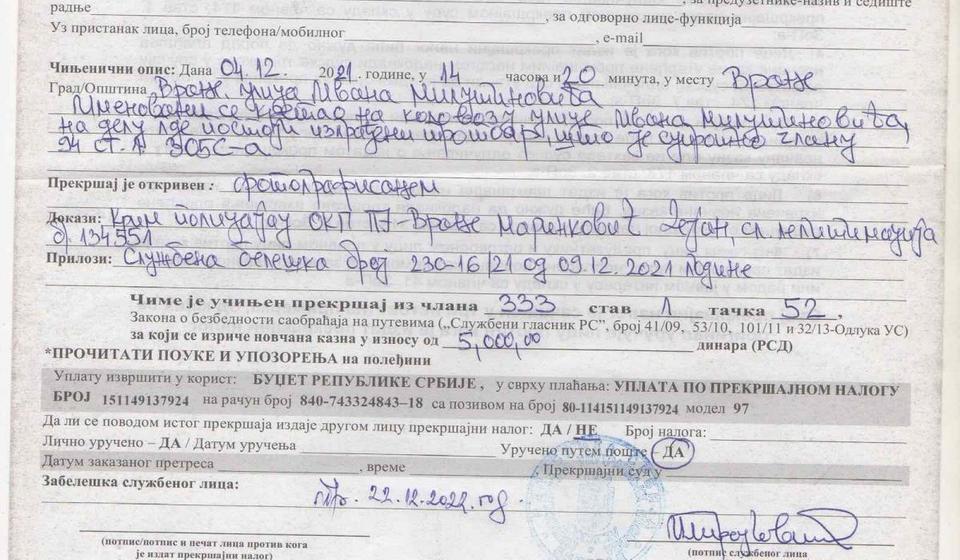 за предузетнике-назив и седиште
радње , за одговорно лице-функција
Уз пристанак лица, број телефона/мобилног , e-mail
Чињенични опис: Дана 04.12. 2021. године, у 14 часова и 20 минута, у месту Врање
Град/Општина Врање улица Ивана Милутиновића
Именовани се кретао на коловозу улице Ивана Милутиновића,
на делу где постоји изграђени тротоар, што је супротно члану
94 ст. 1. ЗОБС-а
Прекршај је откривен : фотографисањем
Докази: Крим полицајац ОКП ПУ-Врање Маринковић Дејан, сл. легитимација
б. 134551
Прилози: Службена белешка број 230-16/21 од 09.12.2021 године
Чиме је учињен прекршај из члана 333 став 1 тачка 52.
Закона о безбедности саобраћаја на путевима („Службени гласник РС”, број 41/09, 53/10, 101/11 и 32/13-Одлука УС)
за који се изриче новчана казна у износу од 5,000,00 динара (РСД)
*ПРОЧИТАТИ ПОУКЕ И УПОЗОРЕЊА на полеђини
Уплату извршити у корист: БУЏЕТ РЕПУБЛИКЕ СРБИЈЕ , у сврху плаћања: УПЛАТА ПО ПРЕКРШАЈНОМ НАЛОГУ
БРОЈ 151149137924 на рачун број 840-743324843–18 са позивом на број 80-114151149137924 модел 97
Да ли се поводом истог прекршаја издаје другом лицу прекршајни налог: ДА / НЕ Број налога:
Лично уручено – ДА / Датум уручења Уручено путем поште – ДА
Датум заказаног претреса , време . Прекршајни суд у
Забелешка службеног лица:
22.12.2022. год.
(потпис/потпис и печат лица против кога
је издат прекршајни налог)
(потпис службеног лица